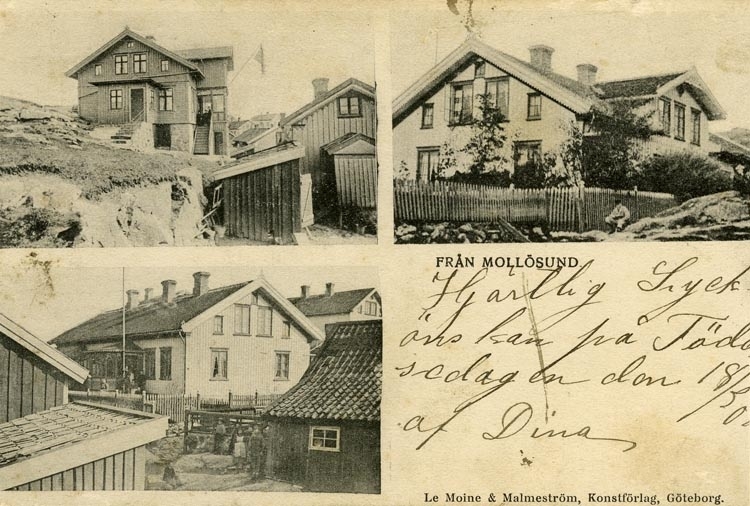 FRÅN MOLLÖSUND
Hjärtlig Lyck-
önskan på Föde
sedagen den 18/
af Dina
Le Moine & Malmeström, Konstförlag, Göteborg.